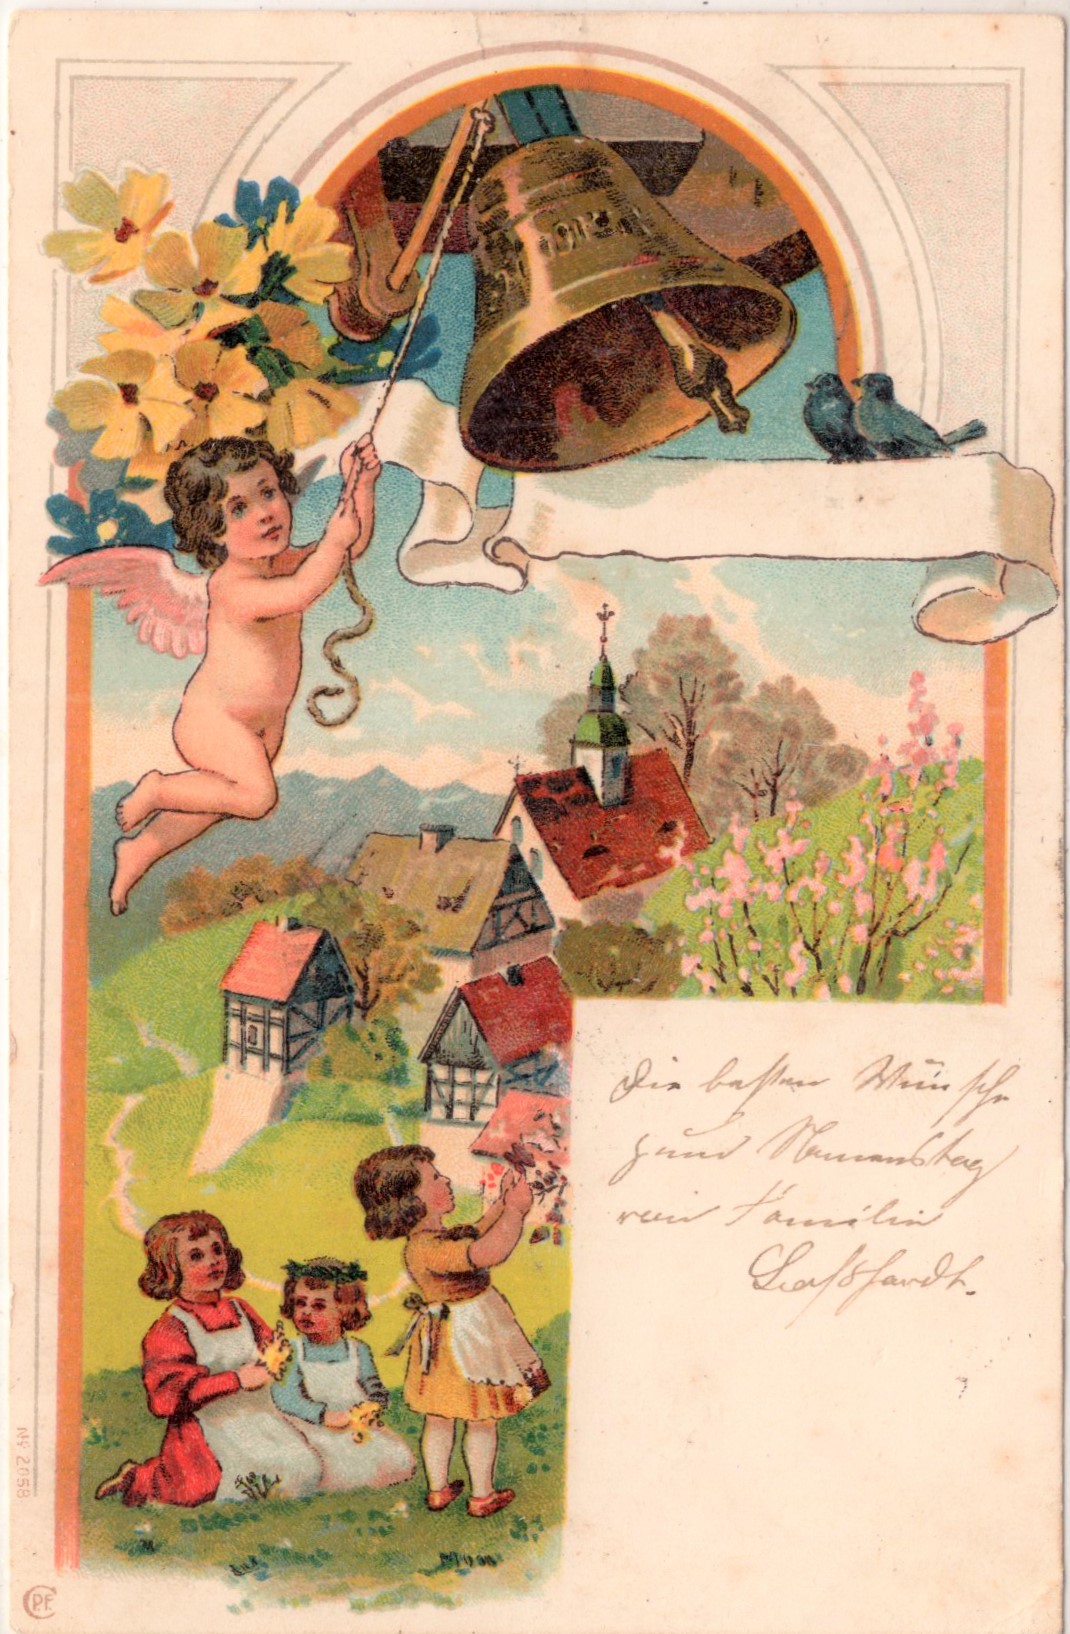 Die besten Wünsche
zum Namenstag
von Familie
No 2058
C P.F.